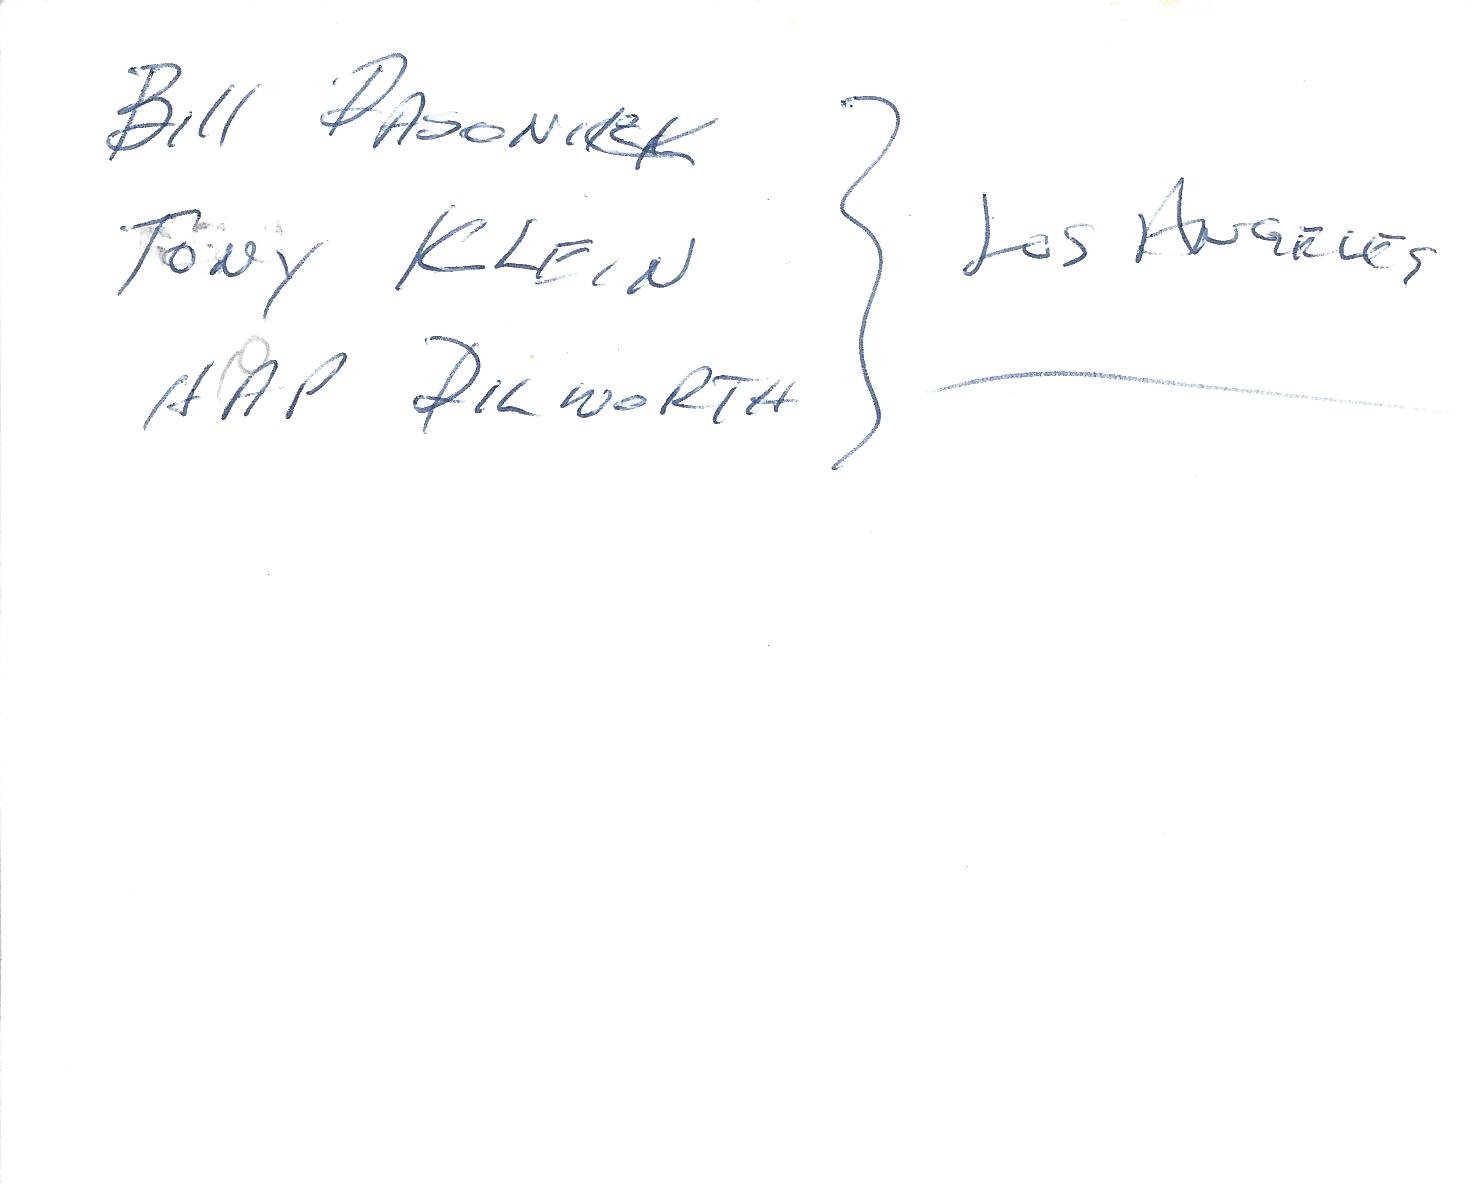 Bill
TONY KLEIN
HAP DILWORTH
LOS ANGELES